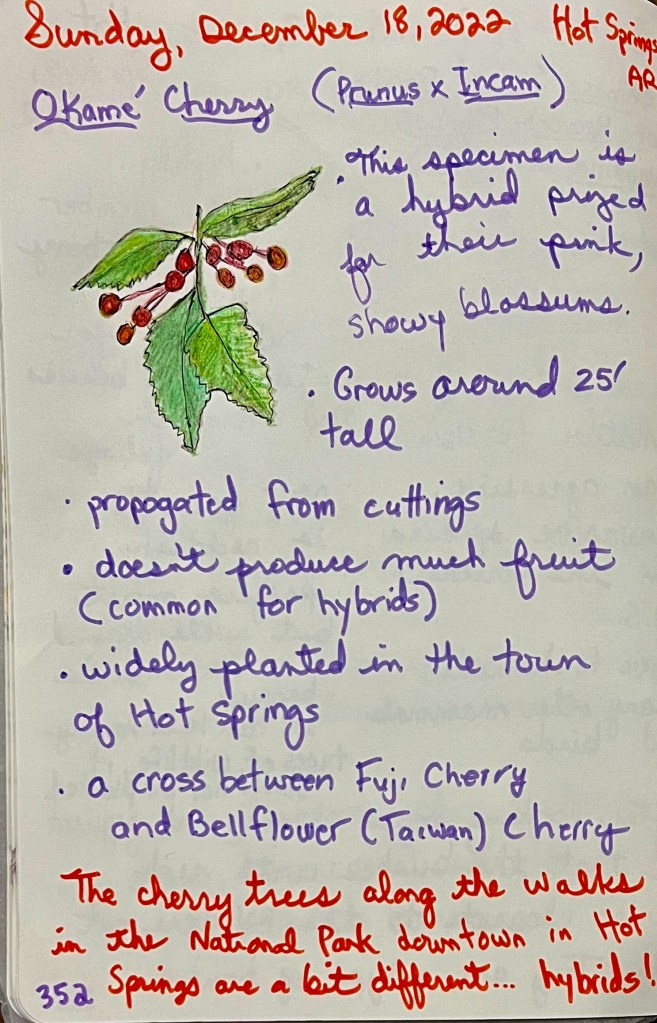 Sunday, December 18, 2022 Hot Springs
AR
Okamé Cherry (Prunus x Incam)
• This specimen is
a hybrid prized
for their pink,
showy blossums.
• Grows around 25'
tall
• propogated from cuttings
• doesn't produce much fruit
(common for hybrids)
• widely planted in the town
of Hot Springs
• a cross between Fuji Cherry
and Bellflower (Taiwan) Cherry
The cherry trees along the walks
in the National Park downtown in Hot
Springs are a bit different... hybrids!
352